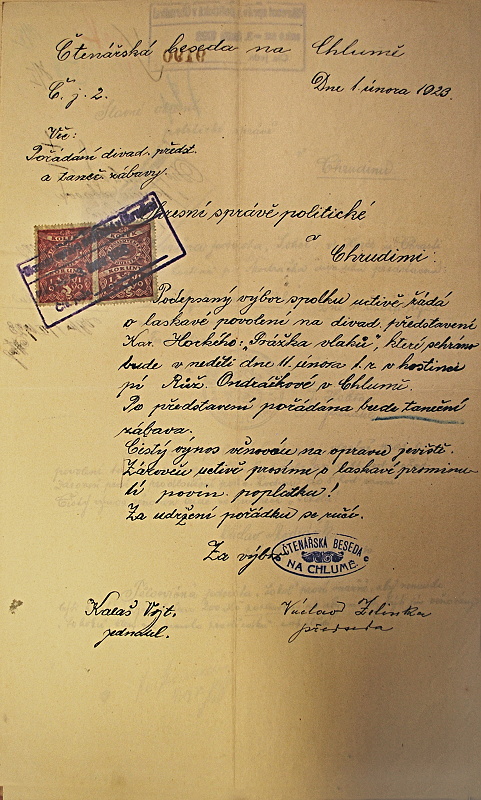 Čtenářská beseda na Chlumě
Č. j. 2.
Dne 1. února 1923.
Věc:
Pořádání divad. předst.
a taneč. zábavy.
Okresní správě politické
v
Chrudimi
Podepsaný výbor spolku uctivě žádá
o laskavé povolení na divad. představení
Kar. Horkého: "Srážka vlaků",
bude v neděli dne 11. února t. r. v hostinci
pí Růž. Ondráčkové v Chlumě.
Po představení pořádána bude taneční
zábava.
Čistý výnos věnován na opravu jeviště.
uctivě prosíme o laskavé prominu-
tí povin. poplatku!
Za udržení pořádku se ručí.
Za výbor
ČTENÁŘSKÁ BESEDA
NA CHLUMĚ.
Kalaš Vojt.
jednatel.
Václav Zelinka
předseda